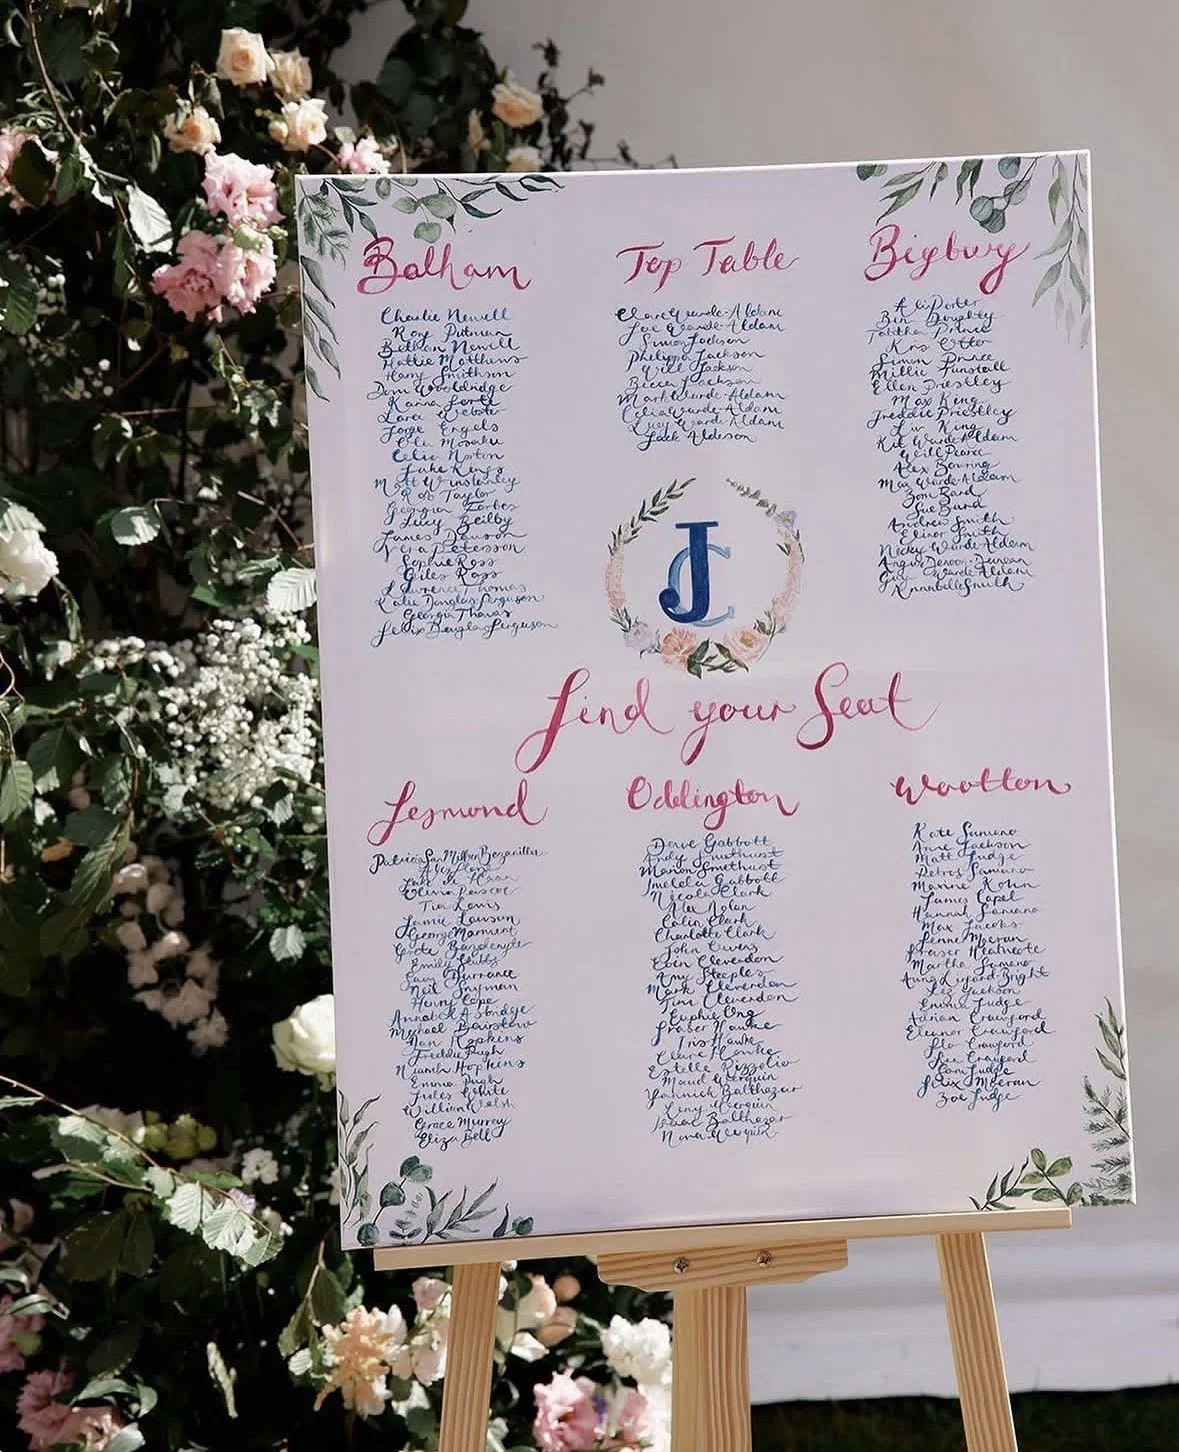 Balham
Charlie Newell
Roxy Putman
Bethan Newell
Hattie Matthews
Harry Smithson
Dom Wooldridge
Lara Webster
Jorge Engels
Celia Norton
Jake Kings
Matt Winstanley
Rob Taylor
Georgina Forbes
Lucy Beilby
James Dawson
Vera Petersson
Sophie Ross
Giles Ross
Lawrence Thomas
Katie Douglas Ferguson
Georgia Thomas
Felix Douglas Ferguson
Top Table
Clare Warde-Aldam
Joe Warde-Aldam
Simon Jackson
Philippa Jackson
Will Jackson
Becca Jackson
Mark Warde-Aldam
Celia Warde-Aldam
Lucy Warde-Aldam
Jack Aldeson
Bigbury
Ali Porter
Ben Doughty
Tabitha Prince
Kris Otter
Simon Prince
Millie Tunstall
Ellen Priestley
Max King
Freddie Priestley
Liv King
Kit Warde-Aldam
Will Pearce
Alex Bowring
May Warde-Aldam
Tom Bard
Sue Bard
Andrew Smith
Elinor Smith
Nicky Warde-Aldam
Angus Deuon-Duncan
Warde-Aldam
Annabelle Smith
J C
Find your Seat
Jesmond
Patricia San Millan Bezanilla
Olivia Pascoe
Tia Lewis
Jamie Lawson
George Marment
Grete Bazdenyte
Emily Stubbs
Sam Durrance
Neil Snyman
Henry Cope
Annabel Astbridge
Michael Bairstow
Nan Hopkins
Freddie Pugh
Niamh Hopkins
Emma Pugh
Jules White
William Welsh
Grace Murray
Eliza Bell
Oddington
Dave Gabbott
Andy Smethurst
Marion Smethurst
Imelda Gabbott
Nicola Clark
Alex Nolan
Colin Clark
Charlotte Clark
John Owens
Even Cleverdon
Amy Steeples
Mark Cleverdon
Tim Cleverdon
Euphie Ong
Fraser Hawke
Iris Hawke
Clare Hawke
Estelle Rizzolio
Maud Werquin
Yannick Balthazar
Leny Werquin
Isaac Balthazar
Nora Werquin
Wootton
Kate Sumano
Anne Jackson
Matt Judge
Petros Samano
Maxine Kohn
James Capel
Hannah Samano
Max Jacobs
Jenne Meeran
Fraser Heathcote
Martha Samano
Jackson
Emma Judge
Adrian Crawford
Eleanor Crawford
Flo Crawford
Ben Crawford
Cam Judge
Felix Meeran
Zoe Judge